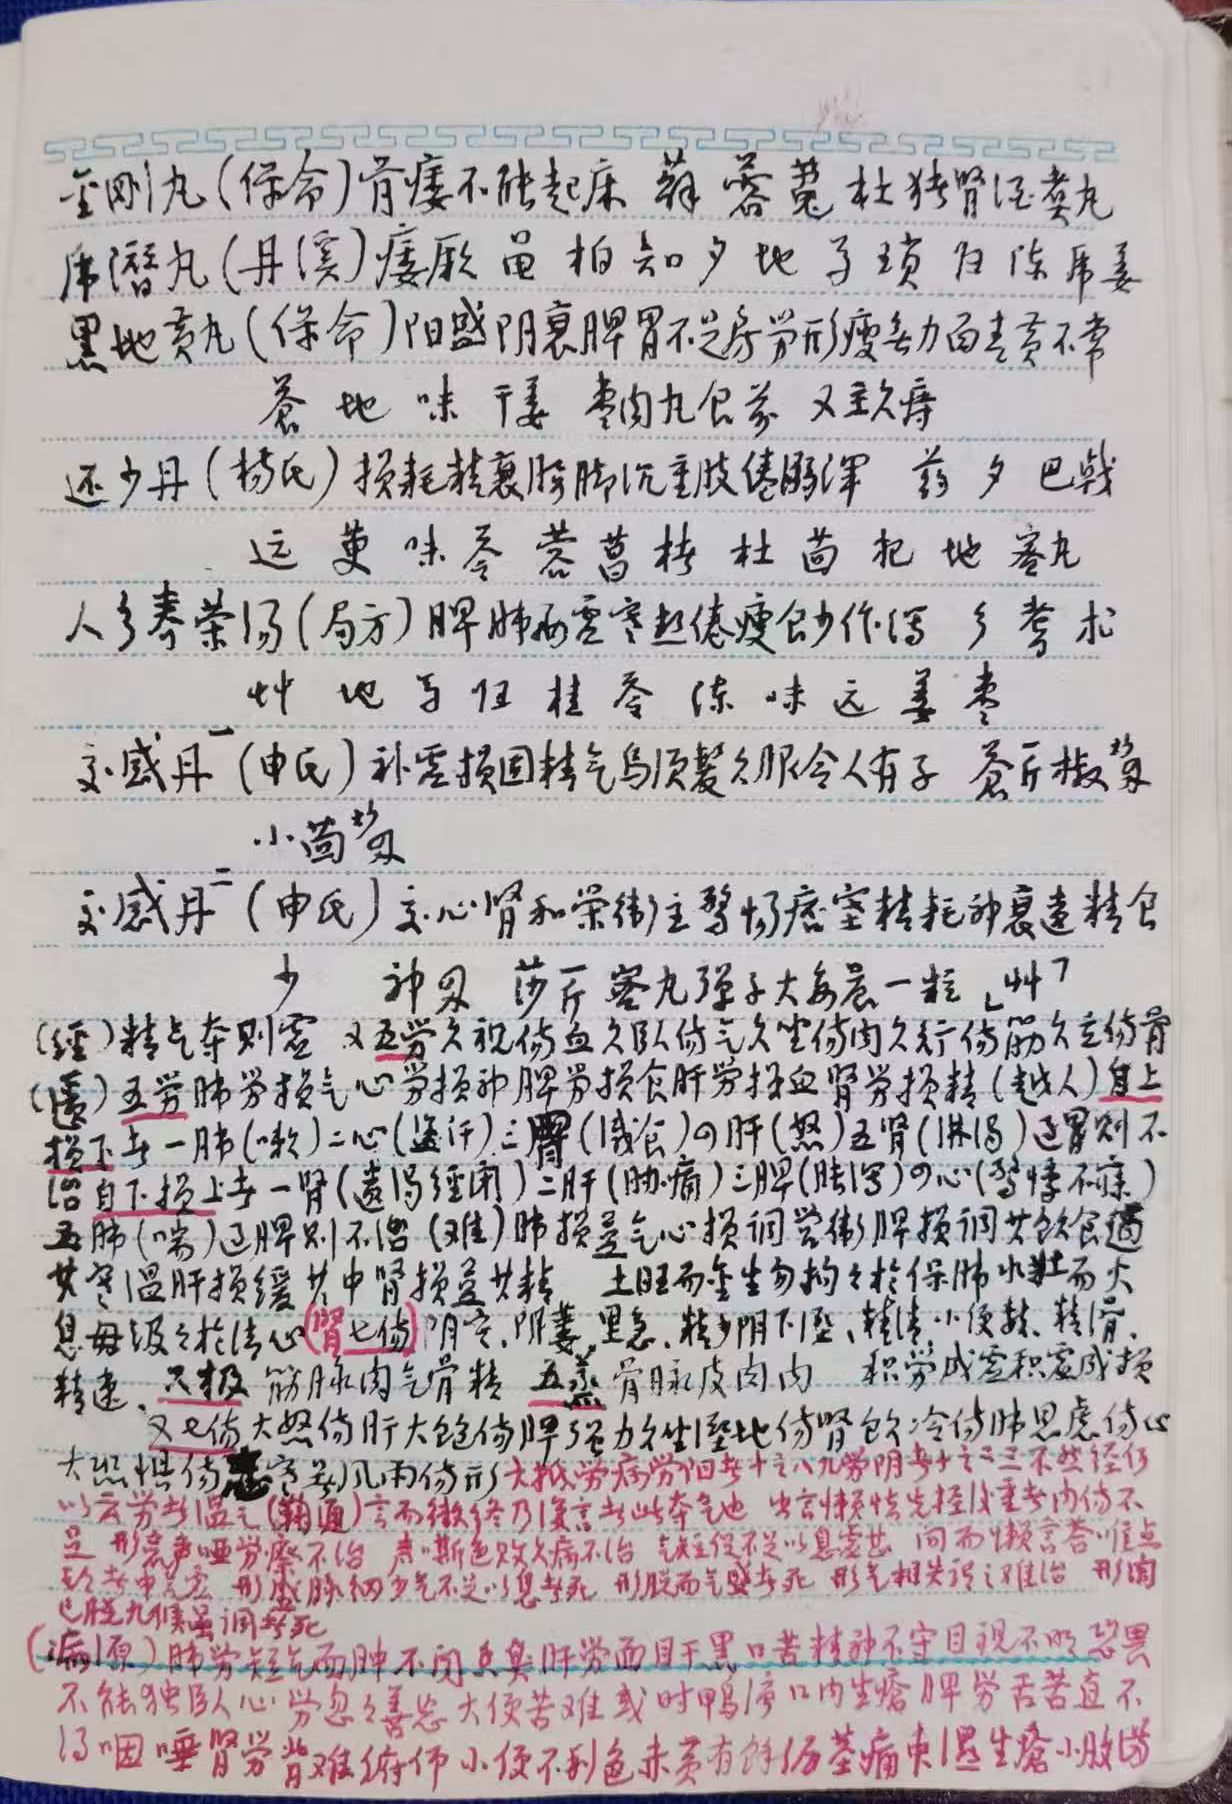 金刚丸(保命)骨痿不能起床 萆 蓉 菟 杜 猪肾酒煮丸
虎潜丸(丹溪)痿厥 龟 柏 知 夕 地 芍 琐 归 陈 虎 姜
黑地黄丸(保命)阳盛阴衰脾胃不足房劳形瘦无力面青黄不常
苍 地 味 干姜 枣肉丸食前 又主久痔
还少丹(杨氏)损耗精衰腰脚沉重肢倦 浑 药 夕 巴戟
远 萸 味 苓 蓉 菖 楮 杜 茴 杞 地 蜜丸
人参养荣汤(局方)脾肺两虚寒热倦瘦食少作泻 参 耆 术
艸 地 芍 归 桂 苓 陈 味 远 姜 枣
交感丹一(申氏)补虚损固精气乌须发久服令人有子 苍斤椒
小茴
交感丹二(申氏)交心肾和荣卫主惊惕痞塞精耗神衰遗精食
少 神 莎斤蜜丸弹子大每晨一粒 艸
(经)精气夺则虚 又五劳久视伤血久卧伤气久坐伤肉久行伤筋久立伤骨
五劳肺劳损气心劳损神脾劳损食肝劳损血肾劳损精(越人)自上
损下者一肺(嗽)二心(盗汗)三胃(减食)四肝(怒)五肾(淋漏)过胃则不
治自下损上者一肾(遗浊经闭)二肝(胁痛)三脾(胀泻)四心(惊悸不寐)
五肺(喘)过脾则不治(难)肺损益气心损调营卫脾损调其饮食适
其寒温肝损缓其中肾损益其精 土旺而金生勿拘拘于保肺水壮而火
息毋汲汲于清心(肾七伤)阴寒、阴萎、里急、精少阴下湿、精清、小便数、精滑、
精速、六极 筋脉肉气骨精 五蒸 骨脉皮肉内 积劳成虚积虚成损
又七伤大怒伤肝大饱伤脾强力久坐湿地伤肾饮冷伤肺思虑伤心
大恐惧伤志寒暑风雨伤形 大抵劳病劳阳者十之八九劳阴者十之二三不然经何
以云劳者温之 言而微终乃复言者此夺气也 出言懒怯先轻后重者内伤不
足 形衰声哑劳瘵不治 声嘶色败久病不治 气短促不足以息虚甚 问而懒言答
者中气虚 形盛脉细少气不足以息者死 形脱而气盛者死 形气相失谓之难治 形肉
已脱九候虽调者死
(病源)肺劳短气面肿不闻香臭肝劳面目干黑口苦精神不守目视不明恐畏
不能独卧心劳忽忽善忘大便苦难或时鸭溏口内生疮脾劳舌苦直不
得咽唾肾劳背难俯仰小便不利色赤黄有余沥茎痛 湿生疮小腹满